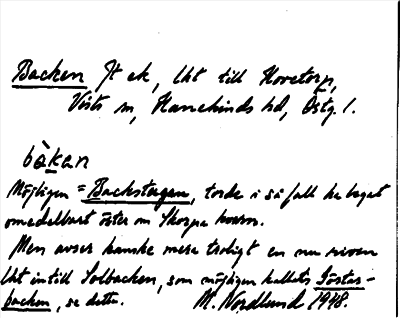 Backen Jt ek, lht till Hovetorp,
Vists sn, Hanekinds hd, Östg. l.
bàkan
Möjligen = Backstugan, torde i så fall ha legat
omedelbart öster om Skorpa kvarn.
Men avser kanske mera troligt en nu riven
lht intill Solbacken, som möjligen kallats Göstas-
backen, se detta. M. Nordlund 1948.